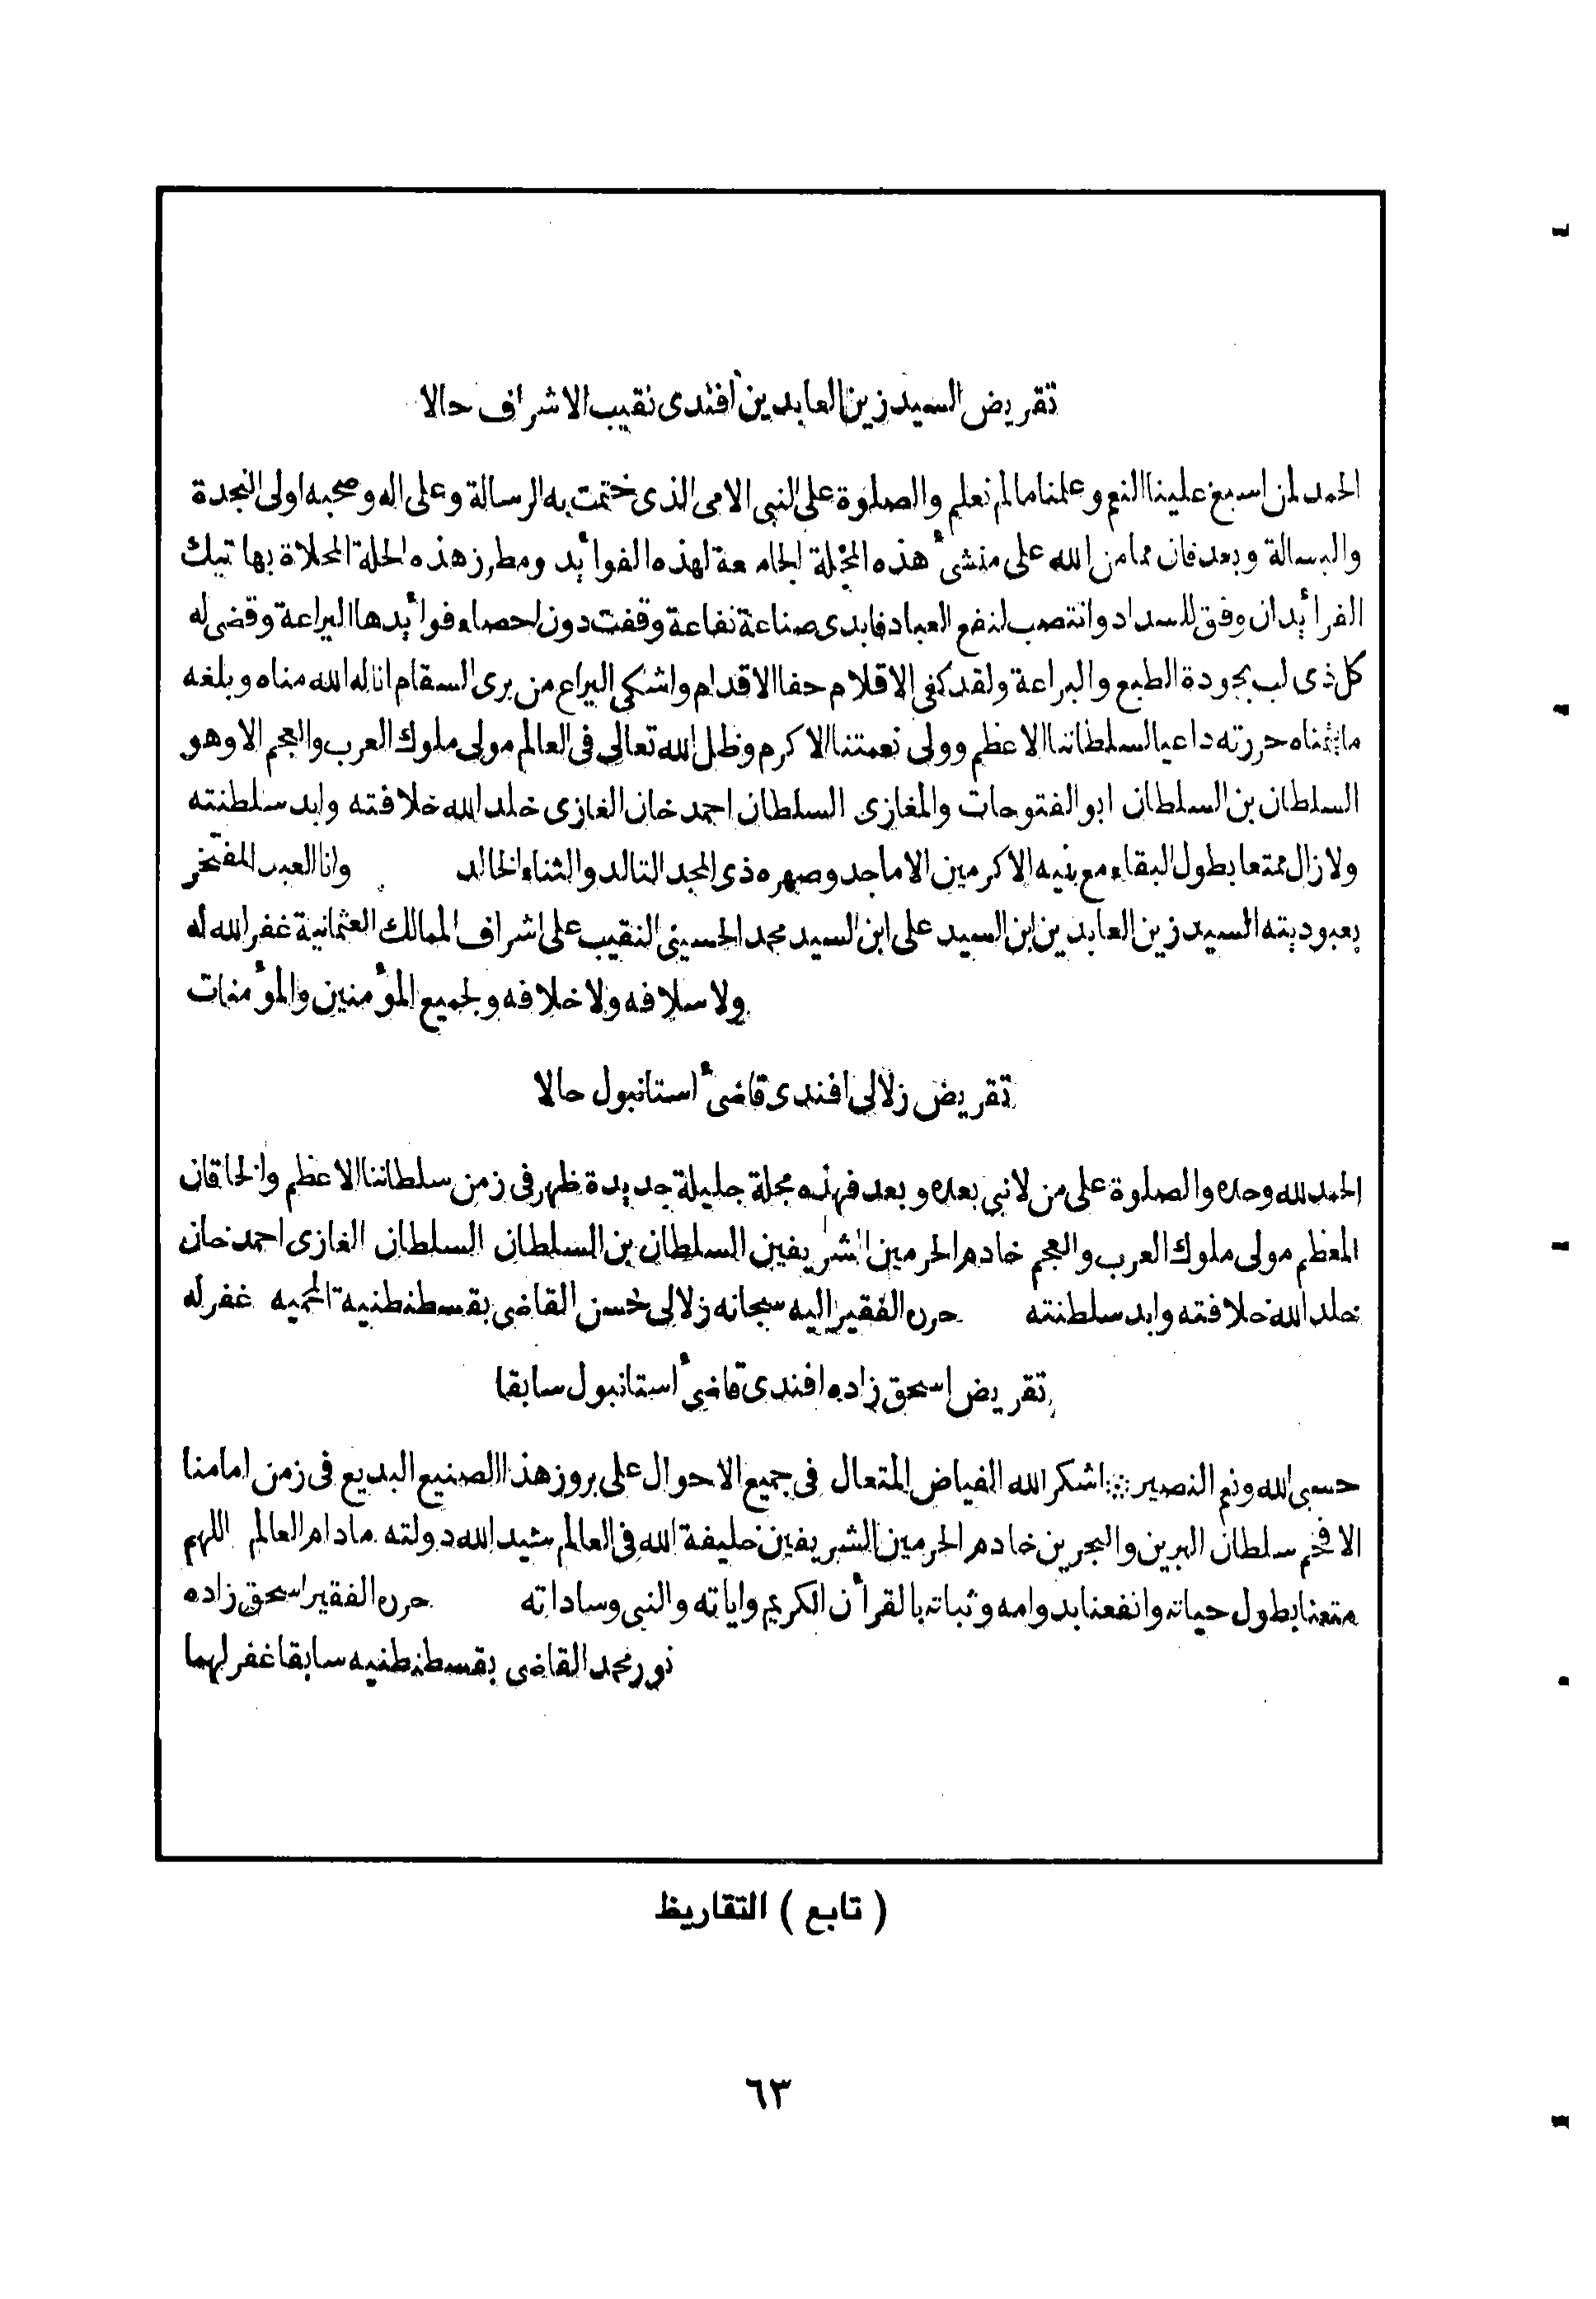 تقريض السيد زين العابدين افندى نقيب الاشراف حالا
الحمد لمن اسبغ علينا النعم وعلمنا مالم نعلم والصلوة على النبى الامى الذى ختمت به الرسالة وعلى اله وصحبه اولى النجدة
والبسالة وبعد فان مما من الله على منشئ هذه المجلة الجامعة لهذه الفوائد ومطرز هذه الحلة المحلاة بهاتيك
الفرائد ان وفق للسداد وانتصب لنفع العباد فابدى صناعة نفاعة وقفت دون احصاء فوائدها اليراعة وقضى له
كل ذى لب بجودة الطبع والبراعة ولقد كفى الاقلام حفا الاقدام واشكى اليراع من برى السقام اناله الله مناه وبلغه
ما يتمناه حررته داعيا لسلطاننا الاعظم وولى نعمتنا الاكرم وظل الله تعالى فى العالم مولى ملوك العرب والعجم الا وهو
السلطان بن السلطان ابو الفتوحات والمغازى السلطان احمد خان الغازى خلد الله خلافته وابد سلطنته
ولا زال ممتعا بطول البقاء مع بنيه الاكرمين الاماجد وصهره ذى المجد التالد والثناء الخالد وانا العبد المفتخر
بعبوديته السيد زين العابدين ابن السيد على ابن السيد محمد الحسينى النقيب على اشراف الممالك العثمانية غفر الله له
ولاسلافه ولاخلافه ولجميع المؤمنين والمؤمنات
تقريض زلالى افندى قاضئ استانبول حالا
الحمد لله وحده والصلوة على من لا نبى بعده وبعد فهذه مجلة جليلة جديدة ظهر فى زمن سلطاننا الاعظم والخاقان
المعظم مولى ملوك العرب والعجم خادم الحرمين الشريفين السلطان بن السلطان السلطان الغازى احمد خان
خلد الله خلافته وابد سلطنته حرره الفقير اليه سبحانه زلالى حسن القاضى بقسطنطنية المحميه غفر له
تقريض اسحق زاده افندى قاضئ استانبول سابقا
حسبى الله ونعم النصير ∴ اشكر الله الفياض المتعال فى جميع الاحوال على بروز هذا الصنيع البديع فى زمن امامنا
الافخم سلطان البرين والبحرين خادم الحرمين الشريفين خليفة الله فى العالم شيد الله دولته مادام العالم اللهم
متعنا بطول حياته وانفعنا بدوامه وثباته بالقرأن الكريم واياته والنبى وساداته حرره الفقير اسحق زاده
نور محمد القاضى بقسطنطنيه سابقا غفر لهما
( تابع ) التقاريظ
٦٣